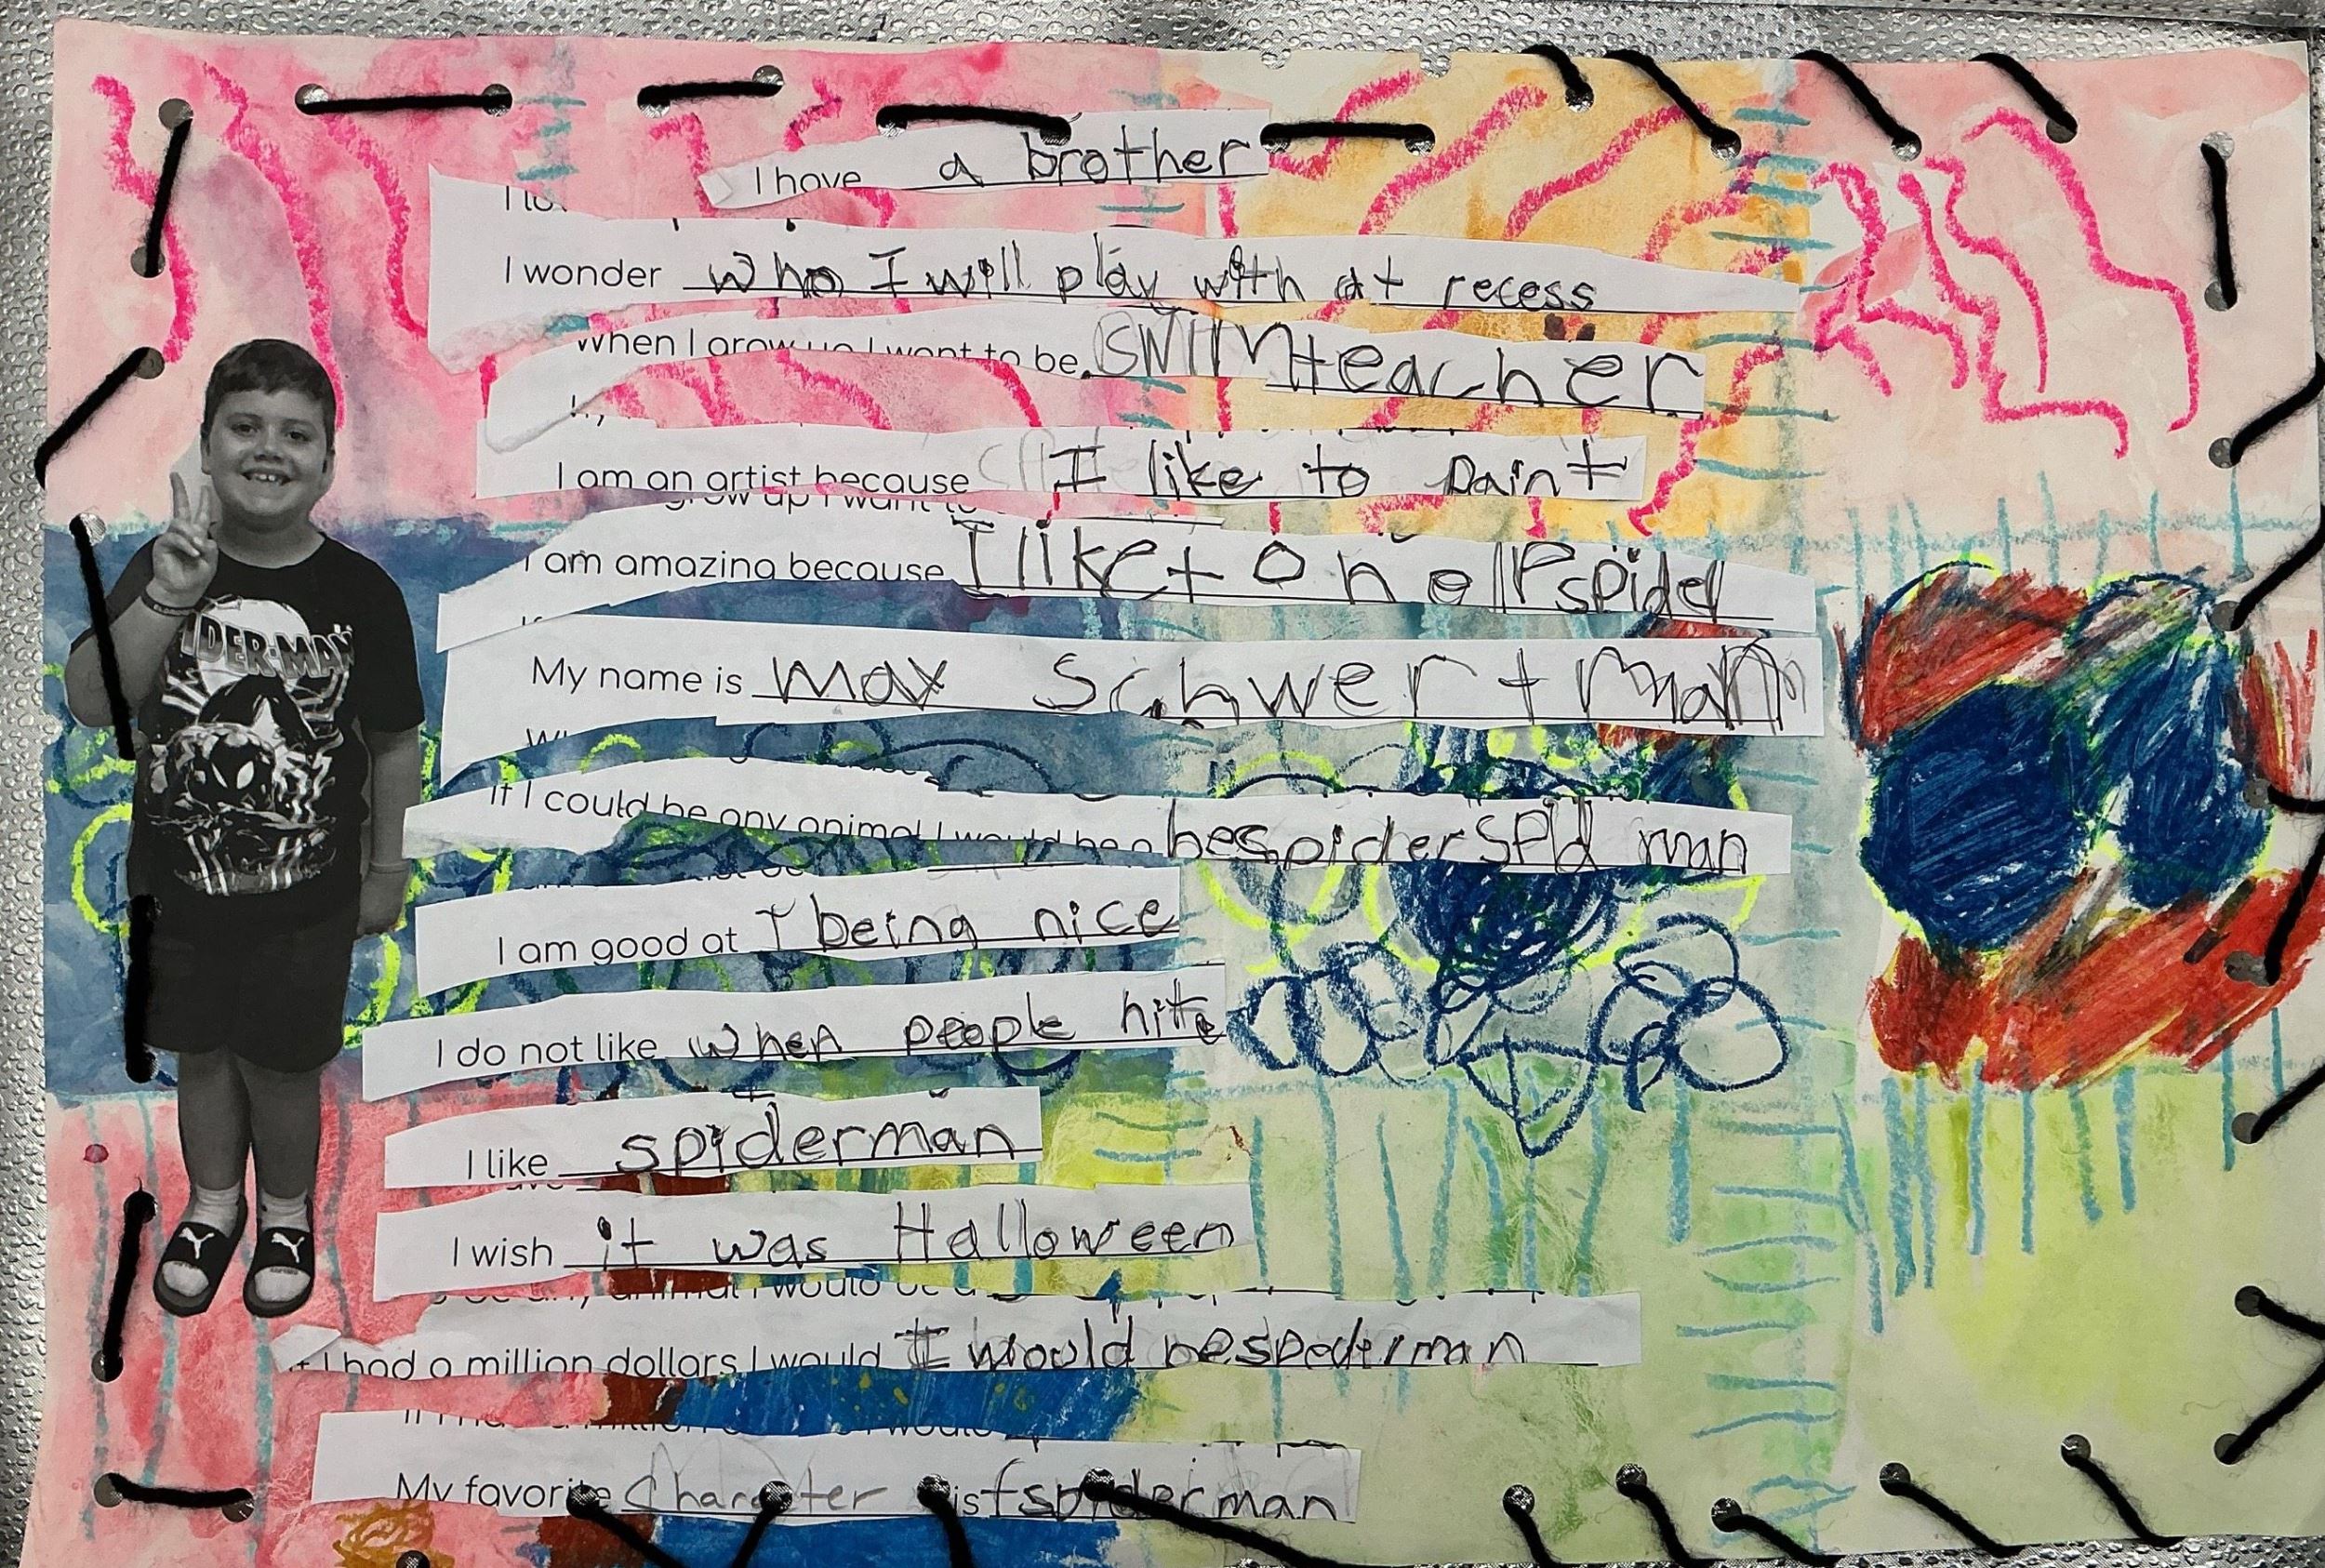 I have a brother
I wonder who I will play with at recess
When I grow up I want to be SWIM teacher
I am an artist because I like to paint
grow up I want to
I am amazing because I like to spider
SPIDER-MAN
My name is max Schwertman
If I could be any animal I would be a be spider SPId man
I am good at I being nice
I do not like when people hite
I like spiderman
I wish it was Halloween
any animal I would be a
If I had a million dollars I would I would be spederman
My favorite Character is spiderman